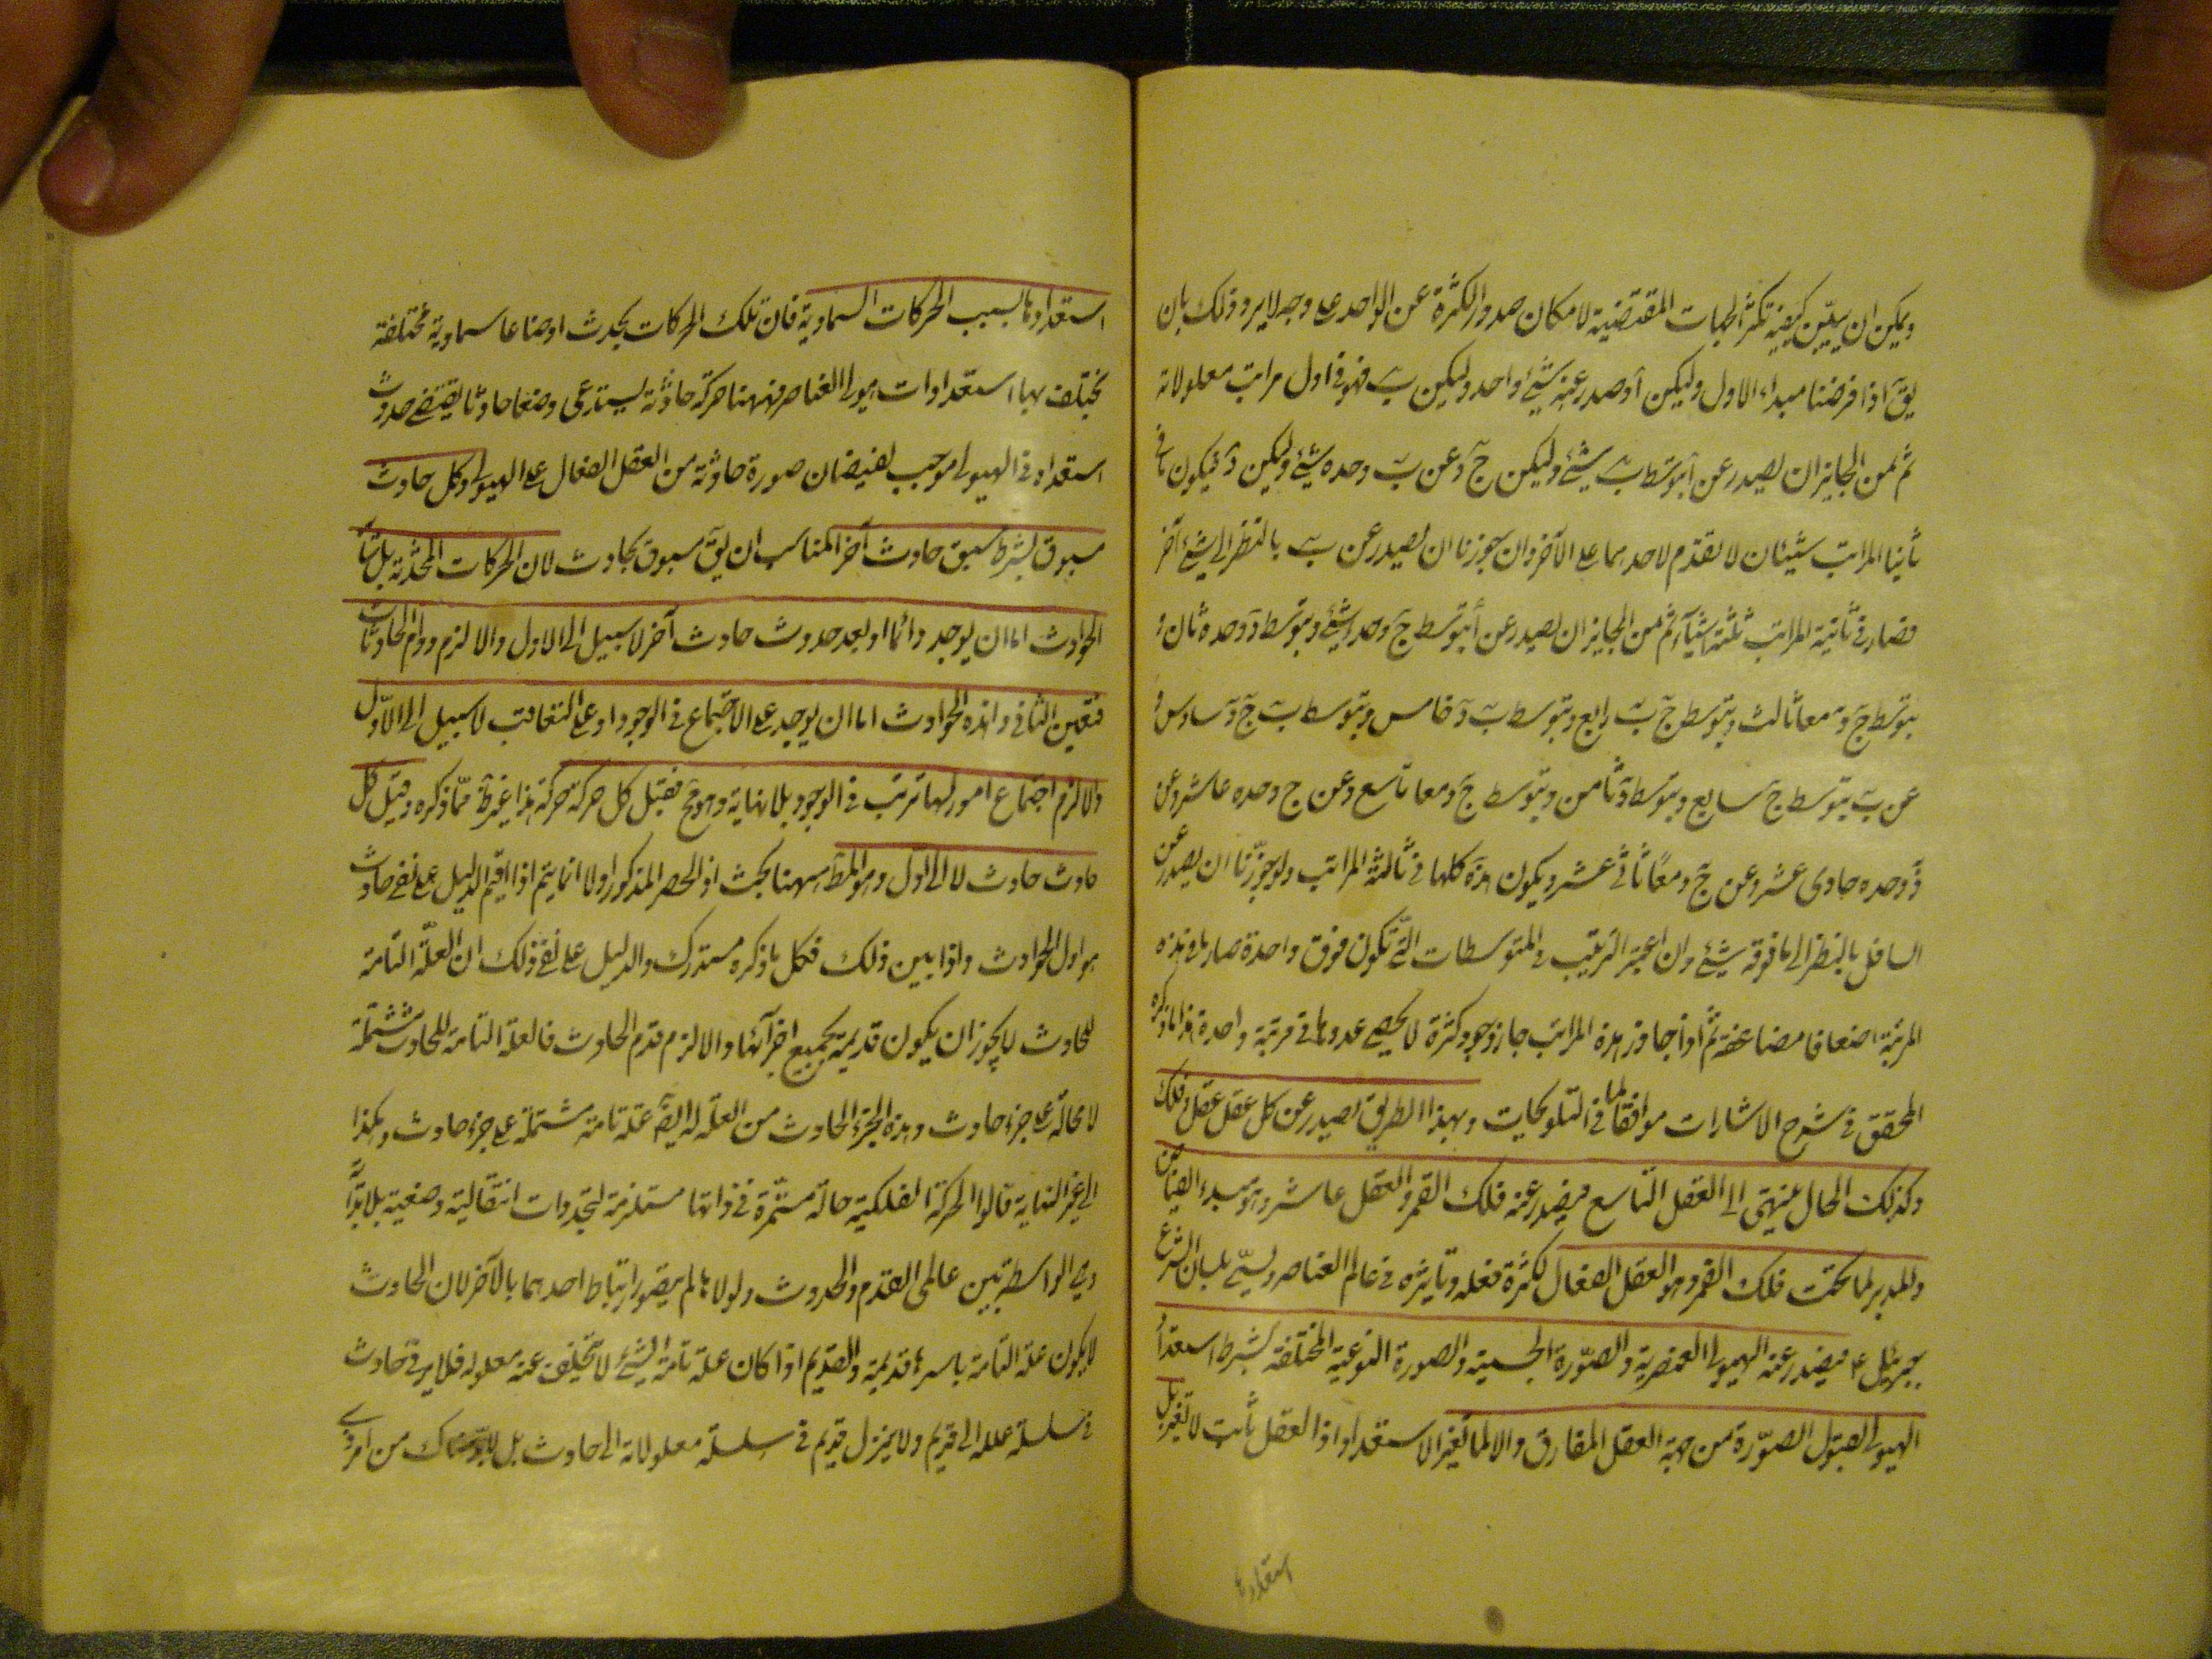 ويمكن ان يبين كيفية تكثر الجهات المقتضية لامكان صدور الكثرة عن الواحد على وجه لا يرد وذلك بان
يق اذا فرضنا مبداء الاول وليكن آ وصدر عنه شيئ واحد وليكن ب فهو في اول مراتب معلولاته
ثم من الجايز ان يصدر عن آ بتوسط ب شيئ وليكن ج وعن ب وحده شيئ وليكن د فيكون في
ثانيا المراتب شيئان لا تقدم لاحدهما على الآخر وان جوزنا ان يصدر عن ب بالنظر الى شيئ آخر
فصار في ثانية المراتب ثلثة اشياء ثم من الجايز ان يصدر عن آ بتوسط ج وحده شيئ وبتوسط د وحده ثان و
بتوسط ج ود معا ثالث وبتوسط ج ب رابع وبتوسط ب د خامس وبتوسط ب ج د سادس و
عن ب بتوسط ج سابع وبتوسط د ثامن وبتوسط ج ومعا تاسع وعن ج وحده عاشر وعن
د وحده حادى عشر وعن ج ومعا ثانى عشر ويكون هذه كلها في ثالثة المراتب ولو جوزنا ان يصدر عن
السافل بالنظر الى ما فوقه شيئ وان اعتبر الترتيب في المتوسطات التي تكون فوق واحدة صار ما في هذه
المرتبة اضعافا مضاعفة ثم اذا جاوز هذه المراتب جاز وجود كثرة لا يحصى عددها في مرتبة واحدة هذا ما ذكره
المحقق في شرح الاشارات موافقا لما في التلويحات وبهذا الطريق يصدر عن كل عقل عقل وفلك
وكذلك الحال فينتهى الى العقل التاسع فيصدر عنه فلك القمر والعقل عاشر وهو مبدء الفياض
والمدبر لما تحت فلك القمر وهو العقل الفعال لكثرة فعله وتاثيره في عالم العناصر ويسمى بلسان الشرع
جبرئيل ع فيصدر عنه الهيولى العنصرية والصورة الجسمية والصورة النوعية المختلفة بشرط استعداد
الهيولى لقبول الصورة من جهة العقل المفارق والا لما تغير الاستعداد اذ العقل ثابت لا تغير بل
استعدادها
استعدادها بسبب الحركات السماوية فان تلك الحركات يحدث اوضاعا سماوية مختلفة
يختلف بها استعدادات هيولى العناصر فههنا حركة حادثة يستدعى وضعا حادثا يقتضى حدوث
استعداد في الهيولى موجب لفيضان صورة حادثة من العقل الفعال على الهيولى وكل حادث
مسبوق بشرط سبق حادث آخر المناسب ان يق مسبوق بحادث لان الحركات المحدثة بل
الحوادث اما ان يوجد دائما او بعد حدوث حادث آخر لا سبيل الى الاول والا لزم دوام الحادث
فتعين الثانى وهذه الحوادث اما ان يوجد على الاجتماع في الوجود او على التعاقب لا سبيل الى الاول
والا لزم اجتماع امور لها ترتب في الوجود بلا نهاية وهو مح فقبل كل حركة حركة هذا مما ذكره وقبل كل
حادث حادث لا الى اول وهو المط ههنا بحث اذ الحصر المذكور اولا انما يتم اذا اقيم الدليل على نفى حادث
هو اول الحوادث واذا بين ذلك فكل ما ذكره مستدرك والدليل على نفى ذلك ان العلة التامة
للحادث لا يجوز ان يكون قديمة بجميع اجزائها والا لزم قدم الحادث فالعلة التامة للحادث مشتملة
لا محالة على جزء حادث وهذه الجزء الحادث من العلة له ايض علة تامة مشتملة على جزء حادث وهكذا
الى غير النهاية قالوا الحركة الفلكية حالة مستمرة في ذاتها مستلزمة لتجددات انتقالية وضعية بلا بداية
وهي الواسطة بين عالمى القدم والحدوث ولولاها لم يتصور ارتباط احدهما بالآخر لان الحادث
لا يكون علة التامة باسرها قديمة والقديم اذا كان علة تامة لشيئ لا تخلف عنه معلوله فلا يرتقى حادث
في سلسلة علله الى قديم ولا يتنزل قديم في سلسلة معلولاته الى حادث بل لا بد هناك من امر